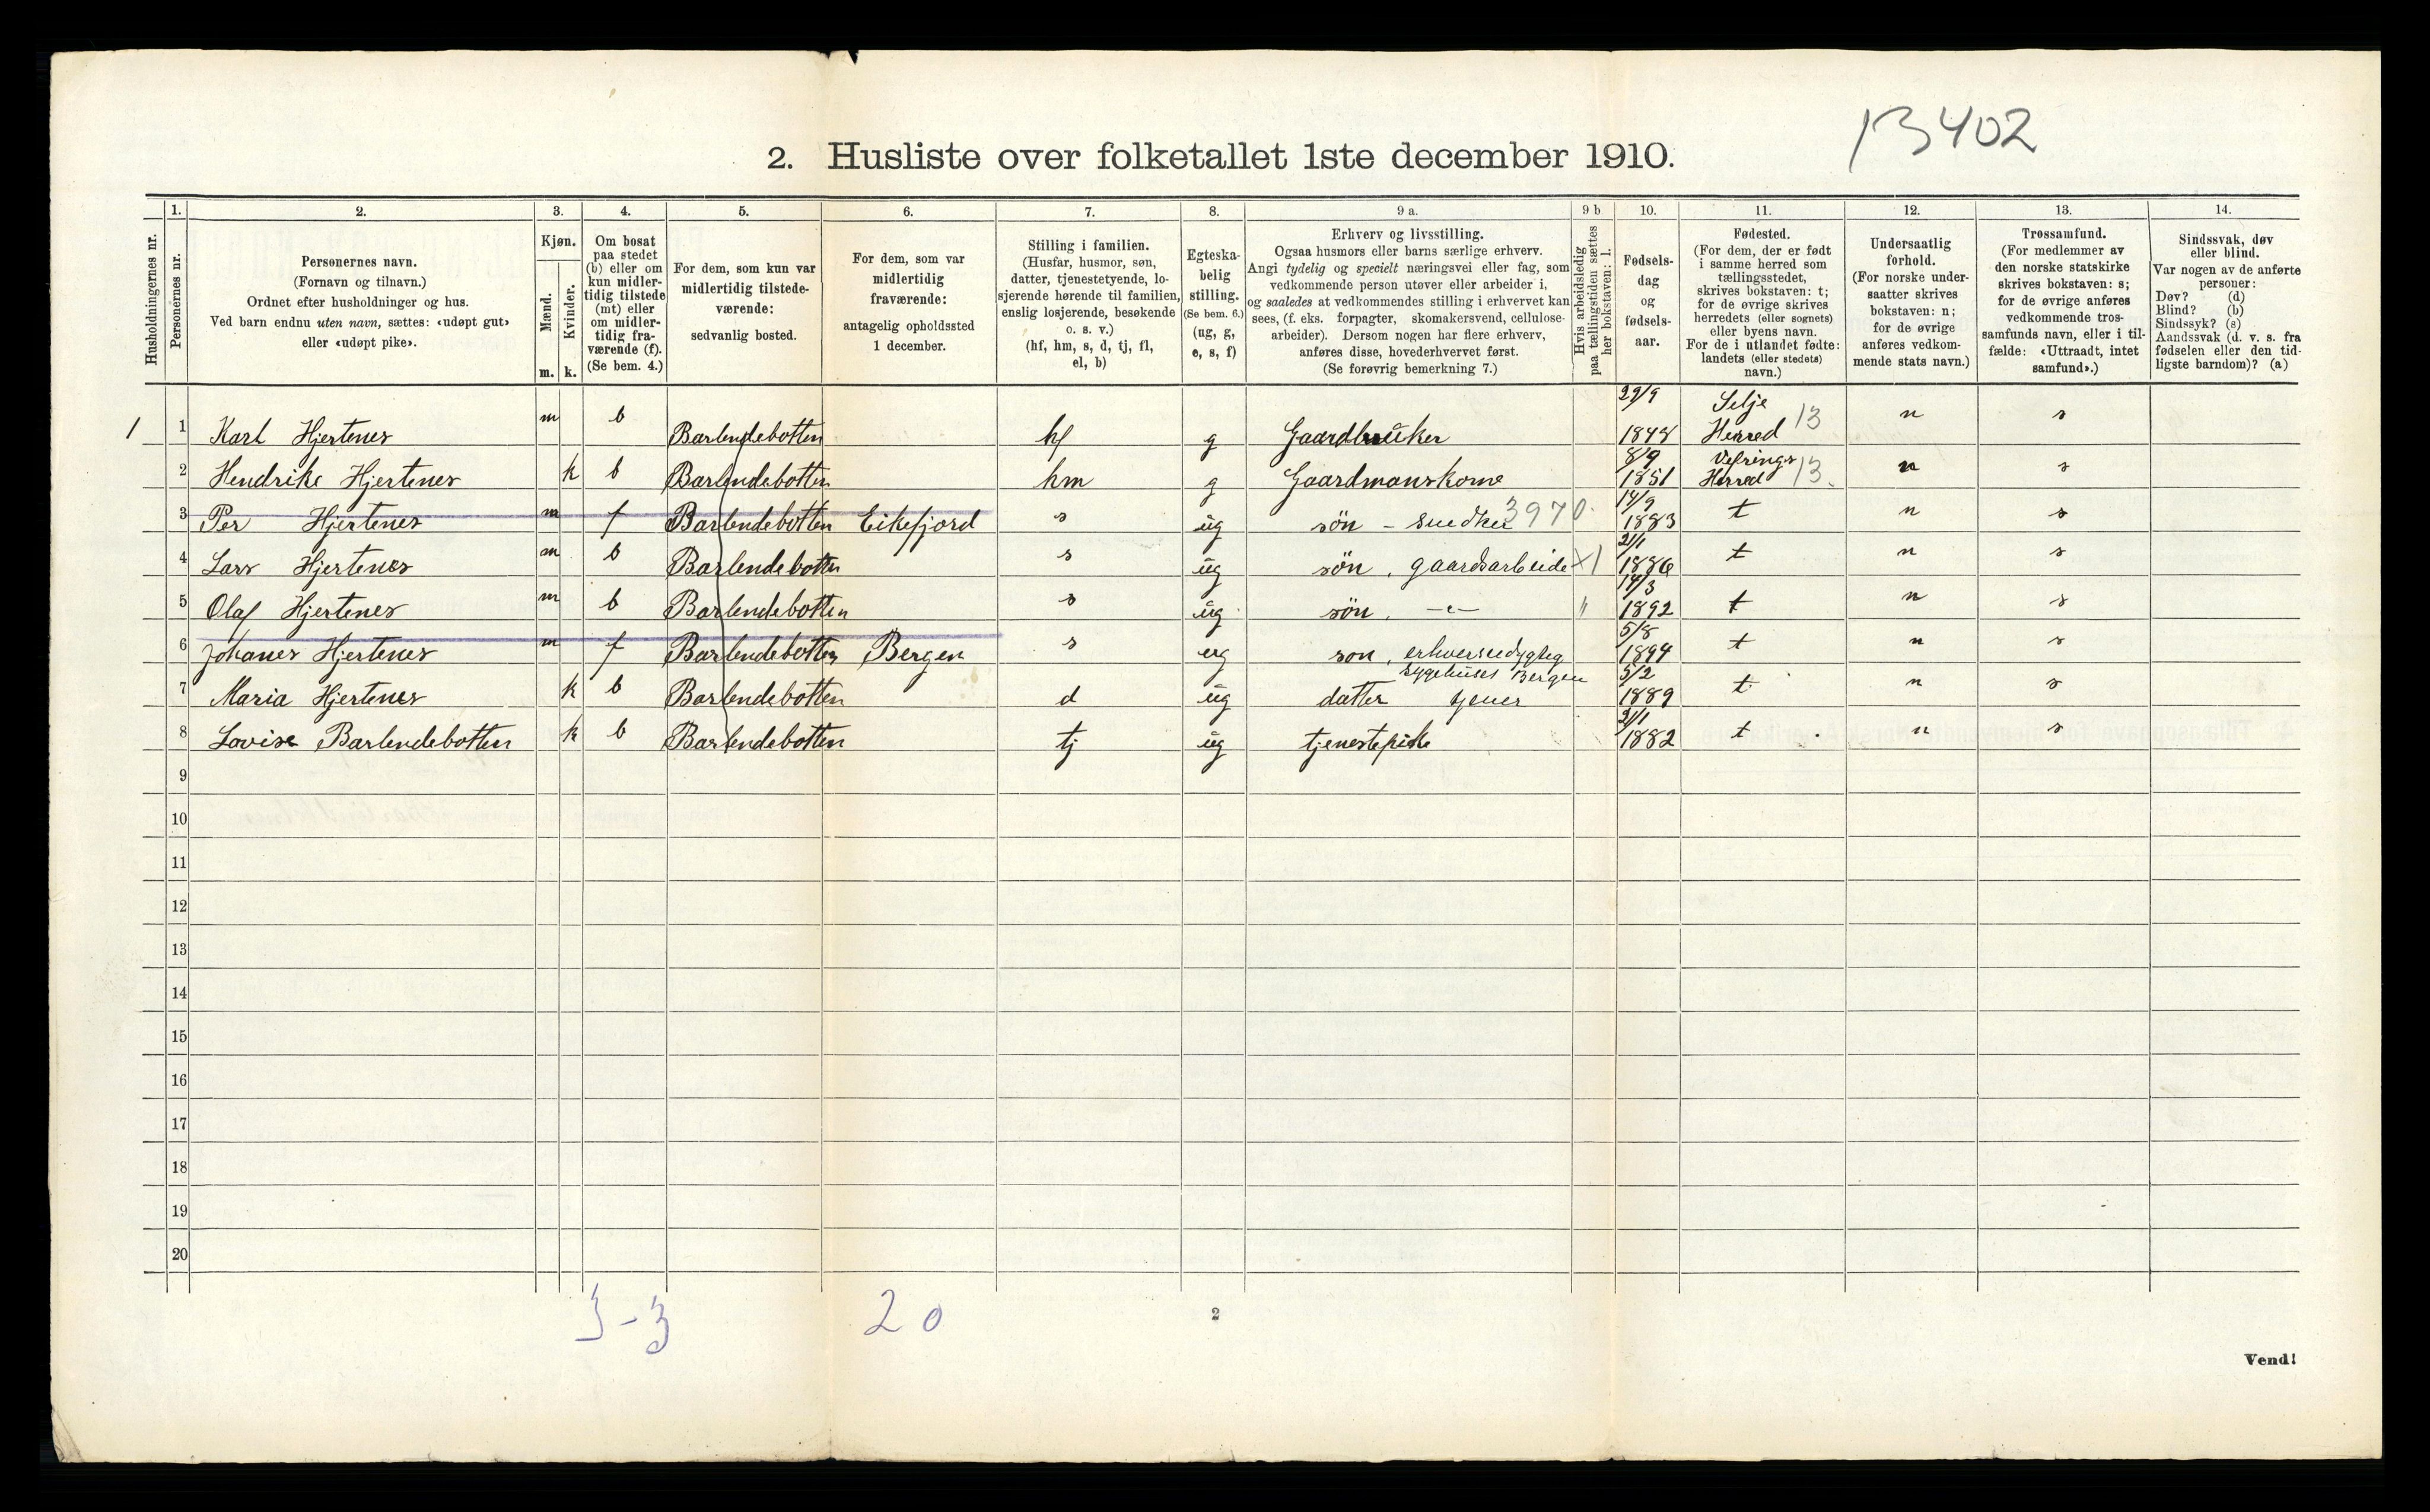 13402
2. Husliste over folketallet 1ste december 1910.
1. 2. 3. 4. 5. 6. 7. 8. 9 a. 9 b 10. 11. 12. 13. 14.
Husholdningernes nr.
Personernes nr.
Personernes navn.
(Fornavn og tilnavn.)
Ordnet efter husholdninger og hus.
Ved barn endnu uten navn, sættes: «udøpt gut»
eller «udøpt pike».
Kjøn.
Mænd.
Kvinder.
m. k.
Om bosat
paa stedet
(b) eller om
kun midler-
tidig tilstede
(mt) eller
om midler-
tidig fra-
værende (f).
(Se bem. 4.)
For dem, som kun var
midlertidig tilstede-
værende:
sedvanlig bosted.
For dem, som var
midlertidig
fraværende:
antagelig opholdssted
1 december.
Stilling i familien.
(Husfar, husmor, søn,
datter, tjenestetyende, lo-
sjerende hørende til familien,
enslig losjerende, besøkende
o. s. v.)
(hf, hm, s, d, tj, fl,
el, b)
Egteska-
belig
stilling.
(Se bem. 6.)
(ug, g,
e, s, f)
Erhverv og livsstilling.
Ogsaa husmors eller barns særlige erhverv.
Angi tydelig og specielt næringsvei eller fag, som
vedkommende person utøver eller arbeider i,
og saaledes at vedkommendes stilling i erhvervet kan
sees, (f. eks. forpagter, skomakersvend, cellulose-
arbeider). Dersom nogen har flere erhverv,
anføres disse, hovederhvervet først.
(Se forøvrig bemerkning 7.)
Hvis arbeidsledig
paa tællingstiden sættes
her bokstaven: l.
Fødsels-
dag
og
fødsels-
aar.
Fødested.
(For dem, der er født
i samme herred som
tællingsstedet,
skrives bokstaven: t;
for de øvrige skrives
herredets (eller sognets)
eller byens navn.
For de i utlandet fødte:
landets (eller stedets)
navn.)
Undersaatlig
forhold.
(For norske under-
saatter skrives
bokstaven: n;
for de øvrige
anføres vedkom-
mende stats navn.)
Trossamfund.
(For medlemmer av
den norske statskirke
skrives bokstaven: s;
for de øvrige anføres
vedkommende tros-
samfunds navn, eller i til-
fælde: «Uttraadt, intet
samfund».)
Sindssvak, døv
eller blind.
Var nogen av de anførte
personer:
Døv? (d)
Blind? (b)
Sindssyk? (s)
Aandssvak (d. v. s. fra
fødselen eller den tid-
ligste barndom)? (a)
1 1 Karl Hjertenes m b Barlendebotten hf g Gaardbruker 29/9 1848 Selje Herred 13 n s
2 Hendrike Hjertenes k b Barlendebotten hm g Gaardmanskone 8/9 1851 Vefrings Herred 13. n s
3 Per Hjertenes m f Barlendebotten Eikefjord s ug søn - snedker 3970. 14/9 1883 t n s
4 Lars Hjertenes m b Barlendebotten s ug søn, gaardsarbeide X1 21/1 1886 t n s
5 Olaf Hjertenes m b Barlendebotten s ug søn, -"- " 14/3 1892 t n s
6 Johanes Hjertenes m f Barlendebotten Bergen s ug søn, erhversudygtig sygehuset Bergen 5/8 1894 t n s
7 Maria Hjertenes k b Barlendebotten d ug datter tjener 5/2 1889 t n s
8 Lovise Barlendebotten k b Barlendebotten tj ug tjenestepike 21/1 1882 t n s
9
10
11
12
13
14
15
16
17
18
19
20
3-3 20
2
Vend!